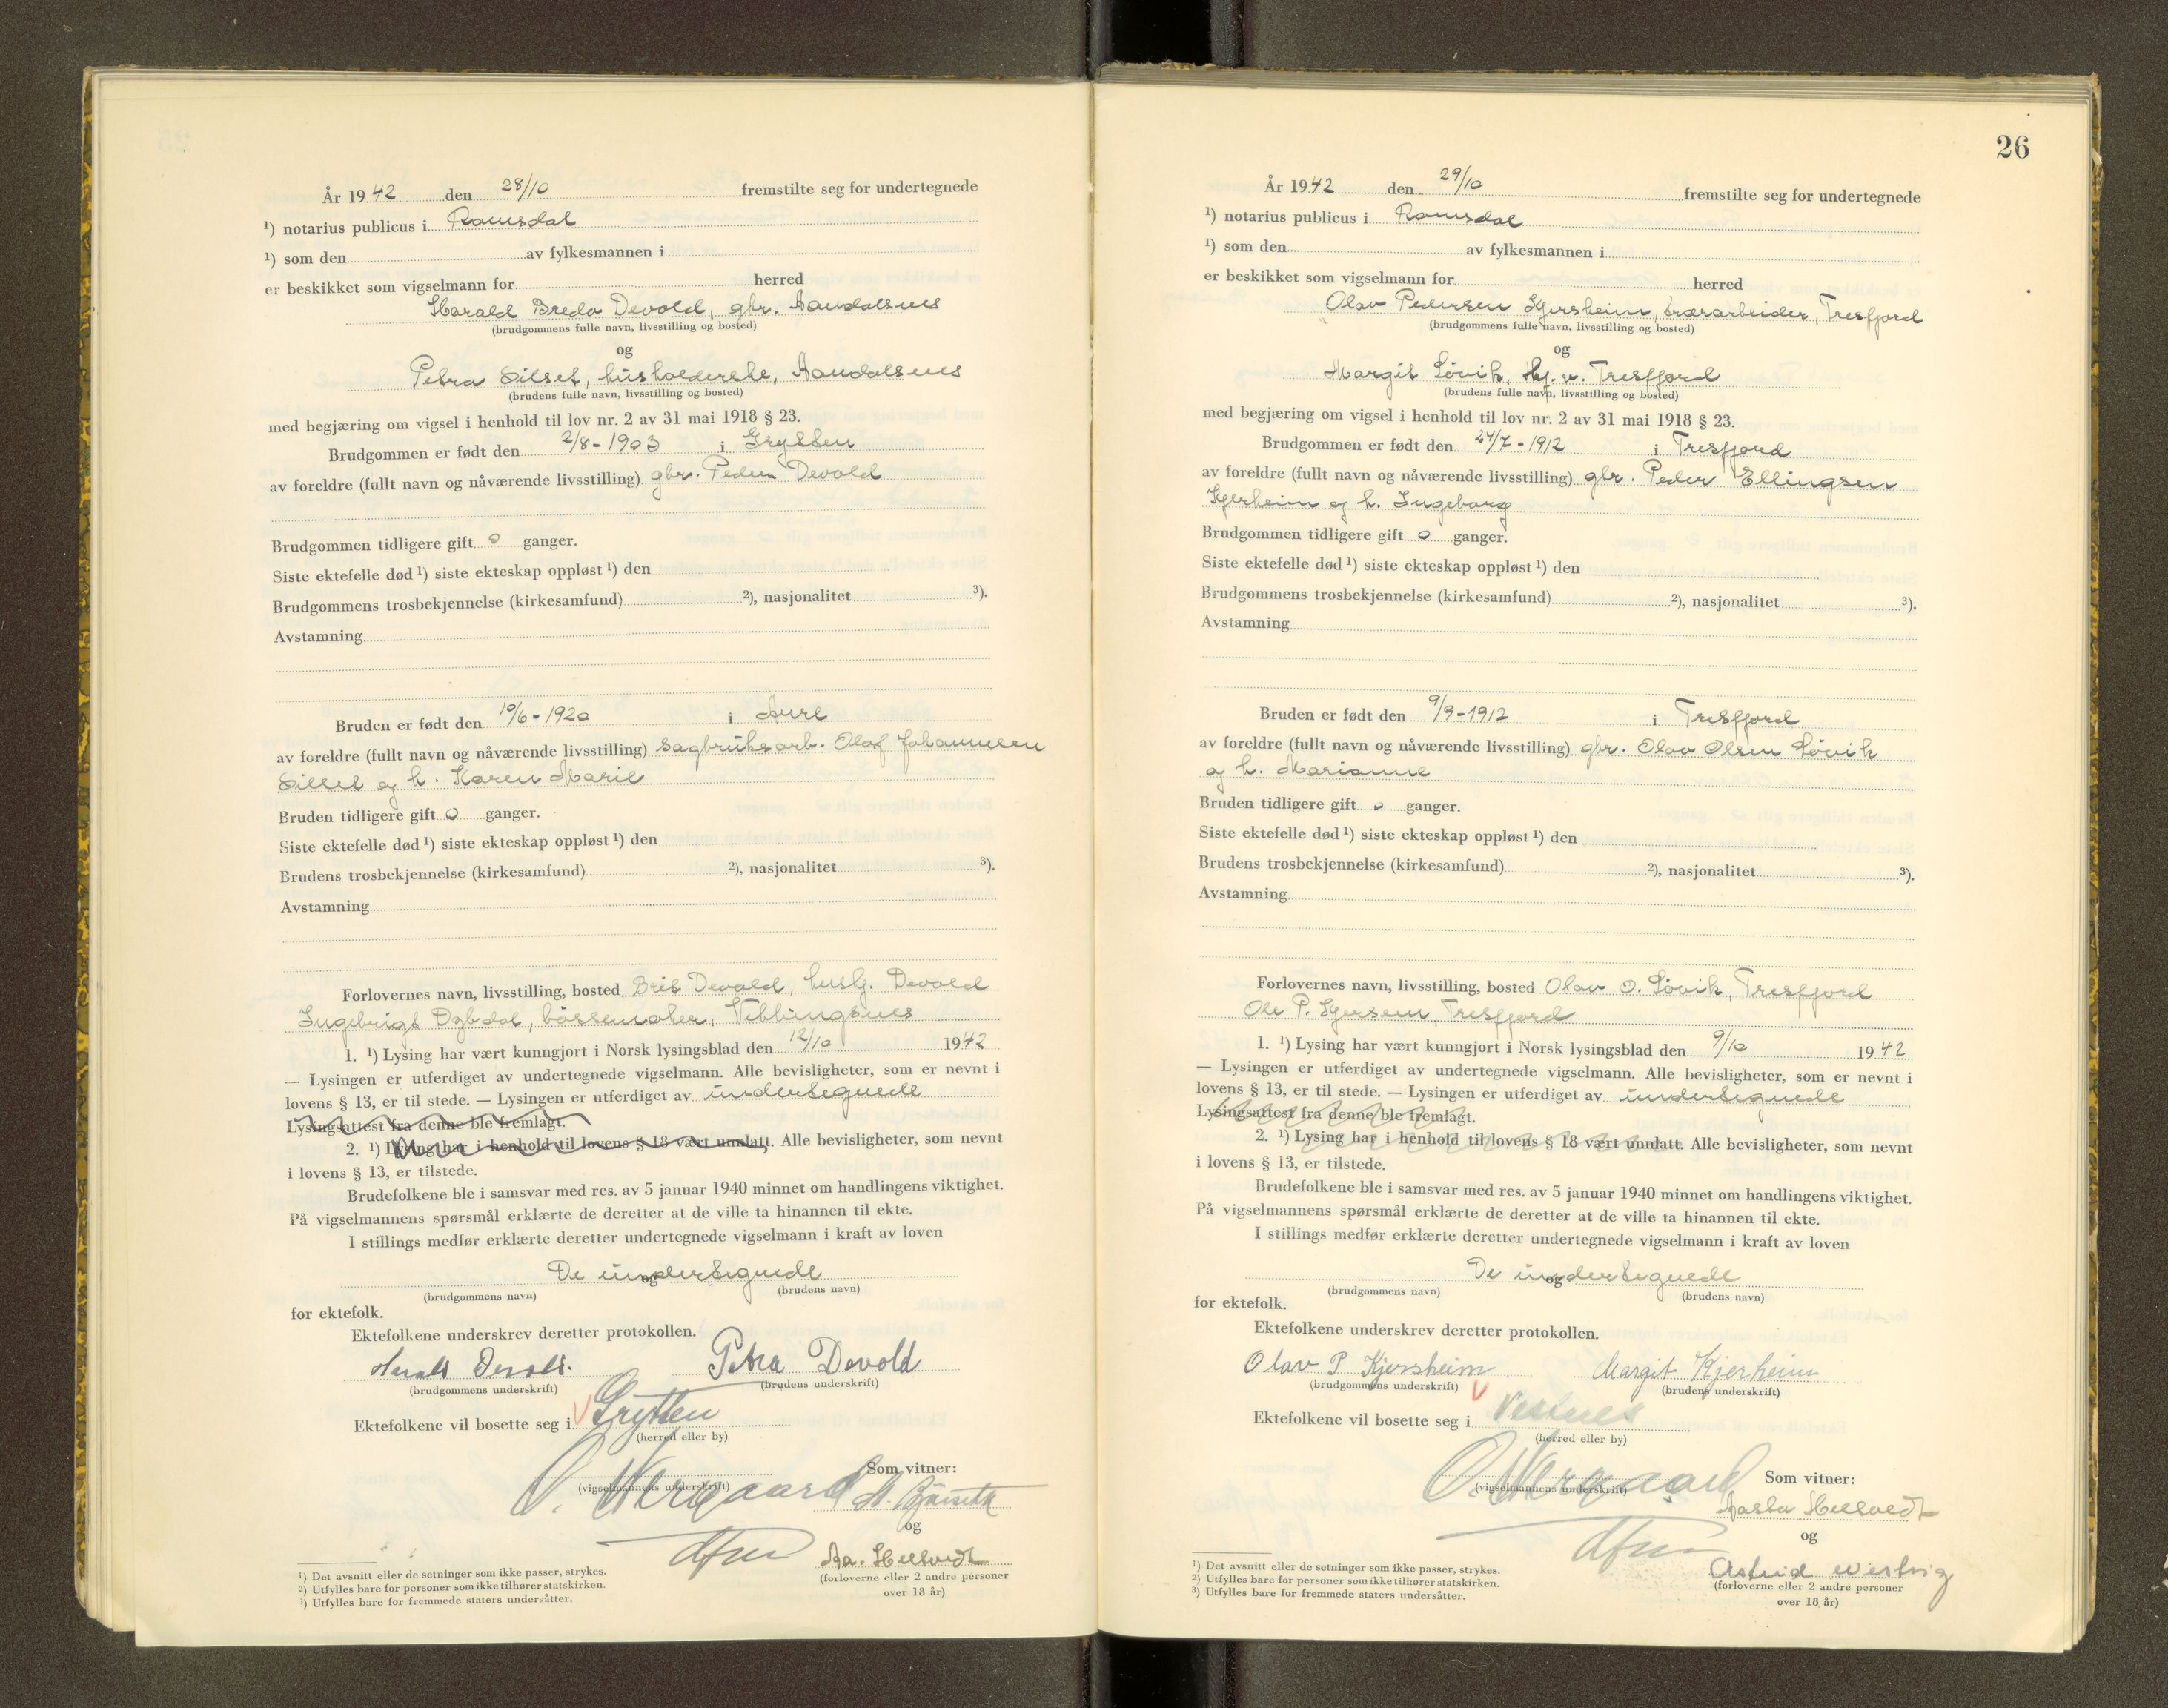 År 1942 den 28/10 fremstilte seg for undertegnede
¹) notarius publicus i Romsdal
¹) som den av fylkesmannen i
er beskikket som vigselmann for herred
Harald Breda Devold, gbr. Aandalsnes
(brudgommens fulle navn, livsstilling og bosted)
og
Petra Silset, husholderske, Aandalsnes
(brudens fulle navn, livsstilling og bosted)
med begjæring om vigsel i henhold til lov nr. 2 av 31 mai 1918 § 23.
Brudgommen er født den 2/8-1903 i Grytten
av foreldre (fullt navn og nåværende livsstilling) gbr. Peder Devold
Brudgommen tidligere gift 0 ganger.
Siste ektefelle død ¹) siste ekteskap oppløst ¹) den
Brudgommens trosbekjennelse (kirkesamfund) ²), nasjonalitet ³).
Avstamning
Bruden er født den 10/6-1920 i Aure
av foreldre (fullt navn og nåværende livsstilling) sagbruksarb. Olaf Johannesen
Silset og h. Karen Marie
Bruden tidligere gift 0 ganger.
Siste ektefelle død ¹) siste ekteskap oppløst ¹) den
Brudens trosbekjennelse (kirkesamfund) ²), nasjonalitet ³).
Avstamning
Forlovernes navn, livsstilling, bosted Brit Devold, husfj. Devold
Ingebrigt Dybdal, børsemaker, Veblungsnes
1. ¹) Lysing har vært kunngjort i Norsk lysingsblad den 12/10 1942
— Lysingen er utferdiget av undertegnede vigselmann. Alle bevisligheter, som er nevnt i
lovens § 13, er til stede. — Lysingen er utferdiget av undertegnede
Lysingsattest fra denne ble fremlagt.
2. ¹) Lysing har i henhold til lovens § 18 vært unnlatt. Alle bevisligheter, som nevnt
i lovens § 13, er tilstede.
Brudefolkene ble i samsvar med res. av 5 januar 1940 minnet om handlingens viktighet.
På vigselmannens spørsmål erklærte de deretter at de ville ta hinannen til ekte.
I stillings medfør erklærte deretter undertegnede vigselmann i kraft av loven
De undertegnede
og
(brudgommens navn) (brudens navn)
for ektefolk.
Ektefolkene underskrev deretter protokollen.
Harald Devold. Petra Devold
(brudgommens underskrift) (brudens underskrift)
Ektefolkene vil bosette seg i Grytten
(herred eller by)
Som vitner:
O. Nergaard
(vigselmannens underskrift)
og
Aa. Hellvedt
(forloverne eller 2 andre personer
over 18 år)
¹) Det avsnitt eller de setninger som ikke passer, strykes.
²) Utfylles bare for personer som ikke tilhører statskirken.
³) Utfylles bare for fremmede staters undersåtter.
26
År 1942 den 29/10 fremstilte seg for undertegnede
¹) notarius publicus i Romsdal
¹) som den av fylkesmannen i
er beskikket som vigselmann for herred
Olav Pedersen Kjersheim, trearbeider, Tresfjord
(brudgommens fulle navn, livsstilling og bosted)
og
Margit Løvik, Hj. v. Tresfjord
(brudens fulle navn, livsstilling og bosted)
med begjæring om vigsel i henhold til lov nr. 2 av 31 mai 1918 § 23.
Brudgommen er født den 24/7-1912 i Tresfjord
av foreldre (fullt navn og nåværende livsstilling) gbr. Peder Ellingsen
Kjerheim og h. Ingeborg
Brudgommen tidligere gift 0 ganger.
Siste ektefelle død ¹) siste ekteskap oppløst ¹) den
Brudgommens trosbekjennelse (kirkesamfund) ²), nasjonalitet ³).
Avstamning
Bruden er født den 9/9-1912 i Tresfjord
av foreldre (fullt navn og nåværende livsstilling) gbr. Olav Olsen Løvik
og h. Marianne
Bruden tidligere gift 0 ganger.
Siste ektefelle død ¹) siste ekteskap oppløst ¹) den
Brudens trosbekjennelse (kirkesamfund) ²), nasjonalitet ³).
Avstamning
Forlovernes navn, livsstilling, bosted Olav O. Løvik, Tresfjord
Ole P. Kjersem, Tresfjord
1. ¹) Lysing har vært kunngjort i Norsk lysingsblad den 9/10 1942
— Lysingen er utferdiget av undertegnede vigselmann. Alle bevisligheter, som er nevnt i
lovens § 13, er til stede. — Lysingen er utferdiget av undertegnede
Lysingsattest fra denne ble fremlagt.
2. ¹) Lysing har i henhold til lovens § 18 vært unnlatt. Alle bevisligheter, som nevnt
i lovens § 13, er tilstede.
Brudefolkene ble i samsvar med res. av 5 januar 1940 minnet om handlingens viktighet.
På vigselmannens spørsmål erklærte de deretter at de ville ta hinannen til ekte.
I stillings medfør erklærte deretter undertegnede vigselmann i kraft av loven
De undertegnede
og
(brudgommens navn) (brudens navn)
for ektefolk.
Ektefolkene underskrev deretter protokollen.
Olav P Kjersheim Margit Kjerheim
(brudgommens underskrift) (brudens underskrift)
Ektefolkene vil bosette seg i Vestnes
(herred eller by)
Som vitner:
O. Nergaard
(vigselmannens underskrift)
Aasta Hellvedt
og
Astrid
(forloverne eller 2 andre personer
over 18 år)
¹) Det avsnitt eller de setninger som ikke passer, strykes.
²) Utfylles bare for personer som ikke tilhører statskirken.
³) Utfylles bare for fremmede staters undersåtter.